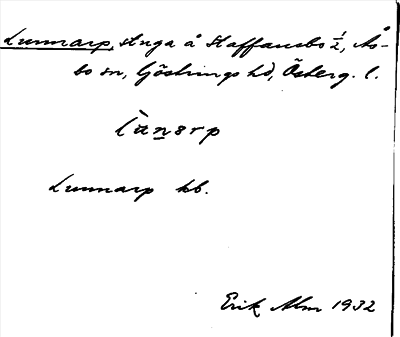 Lunnarp, stuga å Staffansbo 1/2, Ås-
bo sn, Göstrings hd, Österg. l.
lùnarp
Lunnarp kb.
Erik Alm 1932